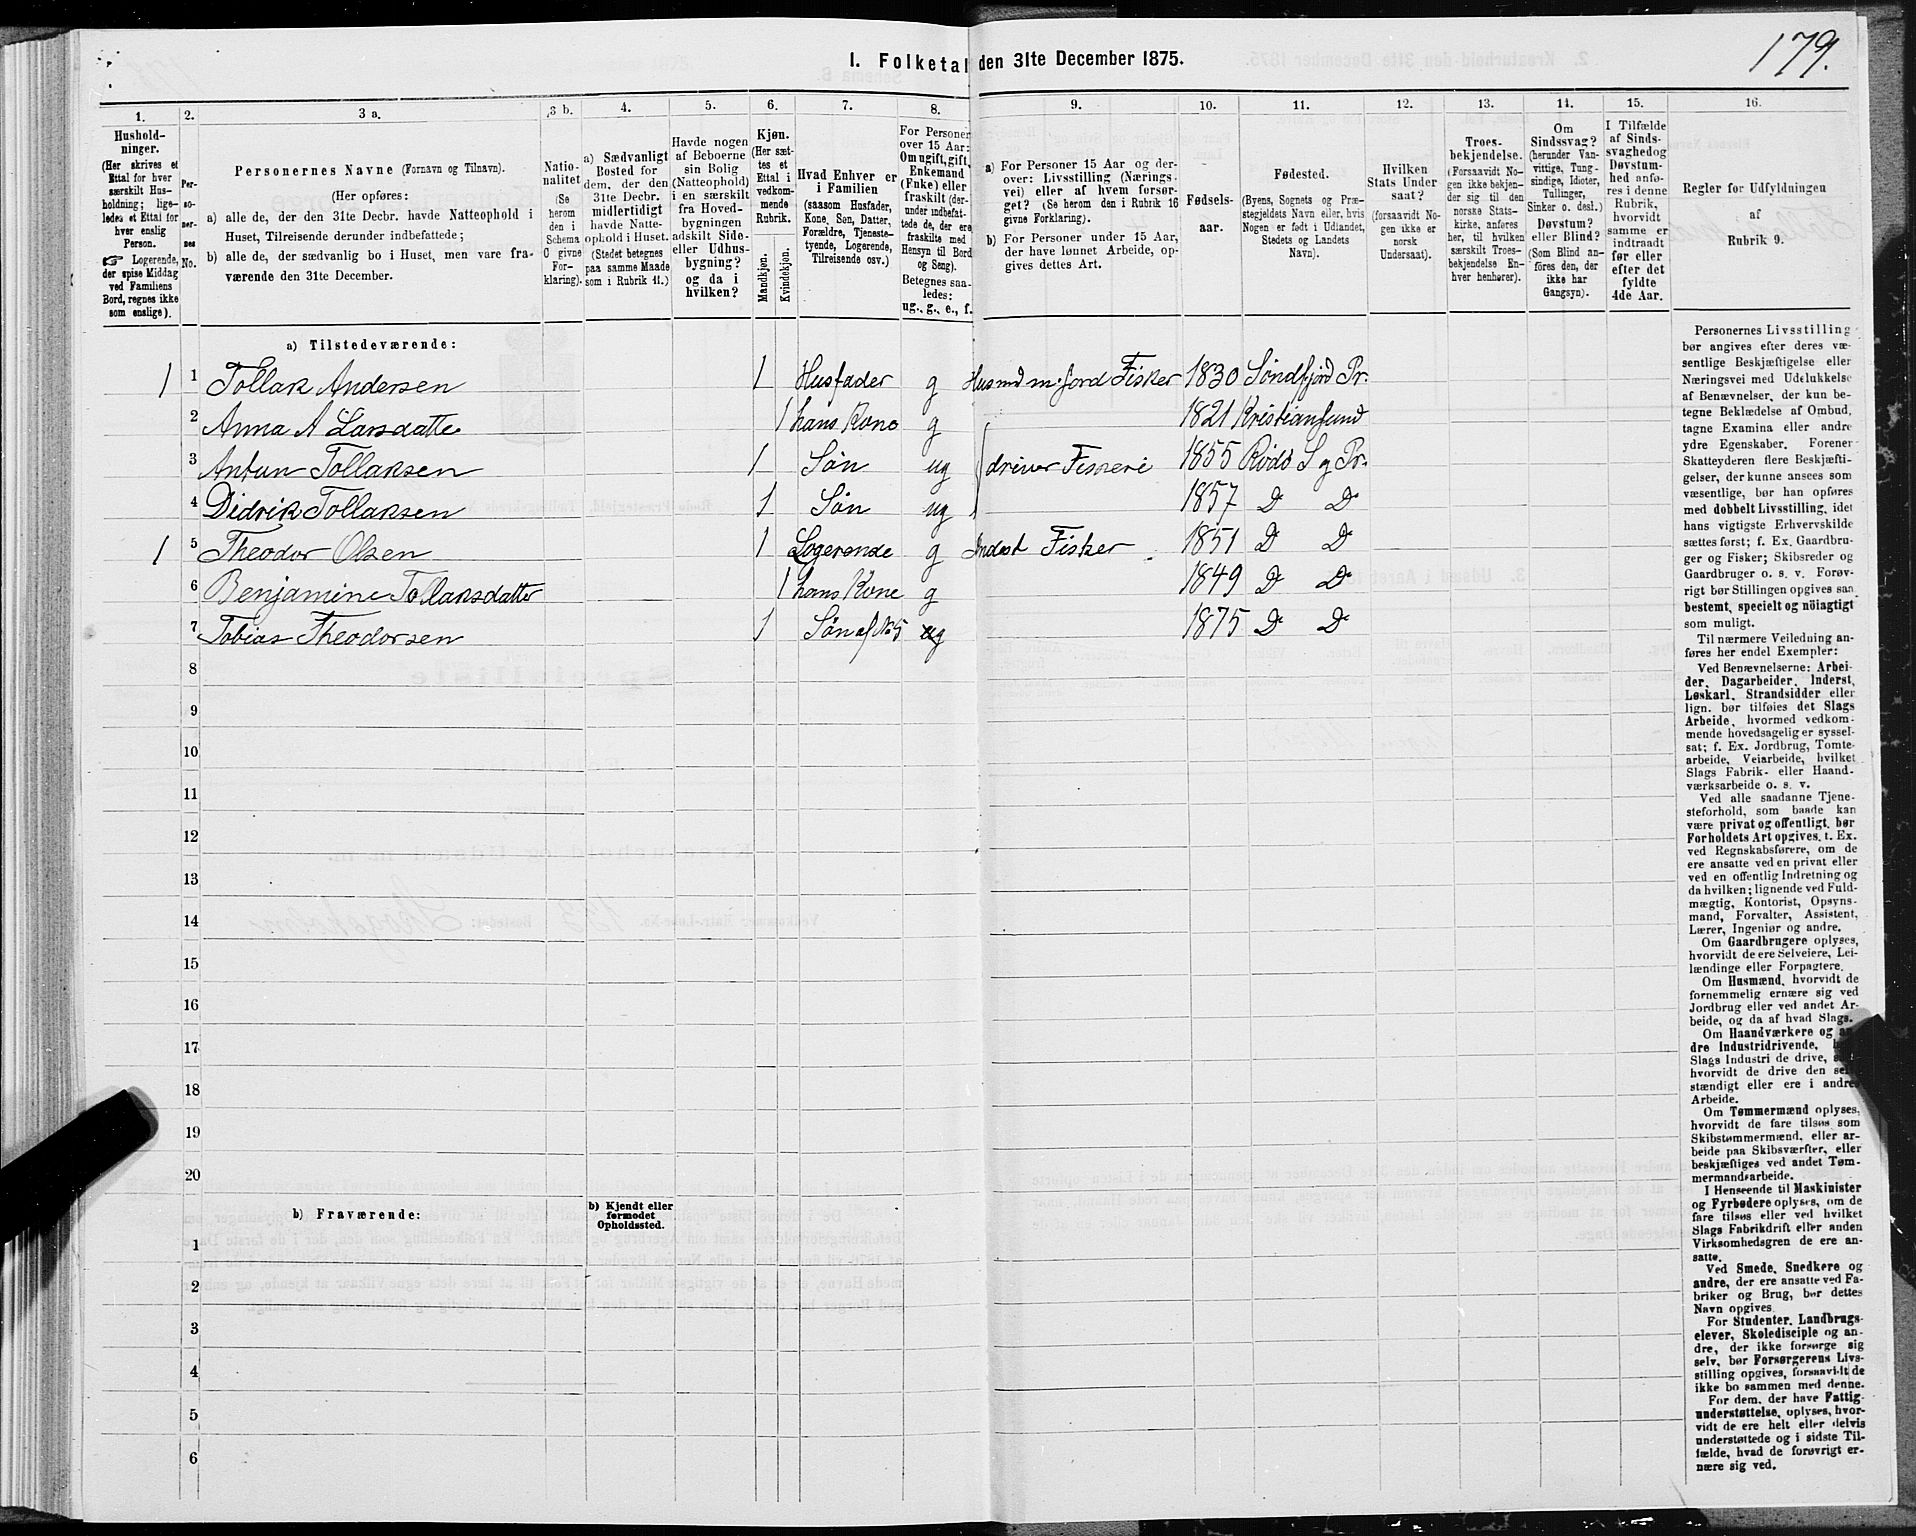 179.
1. Folketal den 31te December 1875.
1. 2. 3 a. 3 b. 4. 5. 6. 7. 8. 9. 10. 11. 12. 13. 14. 15. 16.
Hushold-
ninger.
(Her skrives et
Ettal for hver
særskilt Hus-
holdning; lige-
ledes et Ettal for
hver enslig
Person.
☞ Logerende,
der spise Middag
ved Familiens
Bord, regnes ikke
som enslige).
Per-
so-
ner-
nes
No.
Personernes Navne (Fornavn og Tilnavn).
(Her opføres:
a) alle de, der den 31te Decbr. havde Natteophold i
Huset, Tilreisende derunder indbefattede;
b) alle de, der sædvanlig bo i Huset, men vare fra-
værende den 31te December.
Natio-
nalitet
(Se
herom
den i
Schema
C givne
For-
klaring).
a) Sædvanligt
Bosted for
dem, der den
31te Decbr.
midlertidigt
havde Natte-
ophold i Huset.
(Stedet betegnes
paa samme Maade
som i Rubrik 11.)
Havde nogen
af Beboerne
sin Bolig
(Natteophold)
i en særskilt
fra Hoved-
bygningen
adskilt Side-
eller Udhus-
bygning?
og da i
hvilken?
Kjøn.
(Her sæt-
tes et
Ettal i
vedkom-
mende
Rubrik.
Mandkjøn.
Kvindekjøn.
Hvad Enhver er
i Familien
(saasom Husfader,
Kone, Søn, Datter,
Forældre, Tjeneste-
tyende, Logerende,
Tilreisende osv.)
For Personer
over 15 Aar:
Om ugift, gift,
Enkemand
(Enke) eller
fraskilt (der-
under indbefat-
tede de, der ere
fraskilte med
Hensyn til Bord
og Seng).
Betegnes saa-
ledes:
ug., g., e., f.
a) For Personer 15 Aar og der-
over: Livsstilling (Nærings-
vei) eller af hvem forsør-
get? (Se herom den i Rubrik 16
givne Forklaring).
b) For Personer under 15 Aar,
der have lønnet Arbeide, op-
gives dettes Art.
Fødsels-
aar.
Fødested.
(Byens, Sognets og Præ-
stegjeldets Navn eller, hvis
Nogen er født i Udlandet,
Stedets og Landets
Navn).
Hvilken
Stats Under
saat?
(forsaavidt No-
gen ikke er
norsk
Undersaat).
Troes-
bekjendelse.
(Forsaavidt No-
gen ikke bekjen-
der sig til den
norske Stats-
kirke, anføres
her, til hvilken
særskilt Troes-
bekjendelse En-
hver henhører).
Om
Sindssvag?
(herunder Van-
vittige, Tung-
sindige, Idioter,
Tullinger,
Sinker o. desl.)
Døvstum?
eller Blind?
(Som Blind an-
føres den, der
ikke har
Gangsyn).
I Tilfælde
af Sinds-
svaghed og
Døvstum-
hed anfø-
res i denne
Rubrik,
hvorvidt
samme er
indtraadt
før eller
efter det
fyldte
4de Aar.
Regler for Udfyldningen
af
Rubrik 9.
a) Tilstedeværende:
1 1 Tollak Andersen 1 Husfader g Husmd m. jord Fisker 1830 Søndfjord Pr.
2 Anna A Larsdatte 1 hans Kone g 1821 Kristiansund
3 Antun Tollaksen 1 Søn ug driver Fiskeri 1855 Rødø S g Pr.
4 Didrik Tollaksen 1 Søn ug 1857 D D
1 5 Theodor Olsen 1 Logerende g Inderst Fisker 1851 D D
6 Benjamine Tollaksdatter 1 hans Kone g 1849 D D
7 Tobias Theodorsen 1 Søn af No 5 ug 1875 D D
8
9
10
11
12
13
14
15
16
17
18
19
20
b) Fraværende:
b) Kjendt eller
formodet
Opholdssted.
1
2
3
4
5
6
Personernes Livsstilling
bør angives efter deres væ-
sentlige Beskjæftigelse eller
Næringsvei med Udelukkelse
af Benævnelser, der kun be-
tegne Beklædelse af Ombud,
tagne Examina eller andre
ydre Egenskaber. Forener
Skatteyderen flere Beskjæfti-
gelser, der kunne ansees som
væsentlige, bør han opføres
med dobbelt Livsstilling, idet
hans vigtigste Erhvervskilde
sættes først; f. Ex. Gaardbru-
ger og Fisker; Skibsreder og
Gaardbruger o. s. v. Forøv-
rigt bør Stillingen opgives saa
bestemt, specielt og nöiagtigt
som muligt.
Til nærmere Veiledning an-
føres her endel Exempler:
Ved Benævnelserne: Arbei-
der, Dagarbeider, Inderst,
Løskarl, Strandsidder eller
lign. bør tilføies det Slags
Arbeide, hvormed vedkom-
mende hovedsagelig er syssel-
sat; f. Ex. Jordbrug, Tomte-
arbeide, Veiarbeide, hvilket
Slags Fabrik- eller Haand-
værksarbeide o. s. v.
Ved alle saadanne Tjene-
steforhold, som baade kan
være privat og offentligt, bør
Forholdets Art opgives, t. Ex.
ved Regnskabsførere, om de
ere ansatte ved en privat eller
ved en offentlig Indretning og
da hvilken; lignende ved Fuld-
mægtig, Kontorist, Opsyns-
mand, Forvalter, Assistent,
Lærer, Ingeniør og andre.
Om Gaardbrugere oplyses,
hvorvidt de ere Selveiere, Lei-
lændinge eller Forpagtere.
Om Husmænd, hvorvidt de
fornemmelig ernære sig ved
Jordbrug eller ved andet Ar-
beide, og da af hvad Slags.
Om Haandværkere og an-
dre Industridrivende,
Slags Industri de drive,
hvorvidt de drive den sel
stændigt eller ere i andres
Arbeide.
Om Tømmermænd oplyses,
hvorvidt de fare tilsøs som
Skibstømmermænd, eller ar-
beide paa Skibsværfter, eller
beskjæftiges ved andet Tøm-
mermandsarbeide.
I Henseende til Maskinister
og Fyrbødere oplyses, om de
fare tilsøs eller ved hvilket
Slags Fabrikdrift eller anden
Virksomhedsgren de ere an-
satte.
Ved Smede, Snedkere og
andre, der ere ansatte ved Fa-
briker og Brug, bør dettes
Navn opgives.
For Studenter, Landbrugs-
elever, Skoledisciple og an-
dre, der ikke forsørge sig
selv, bør Forsørgerens Livs-
stilling opgives, forsaavidt de
ikke bo sammen med denne.
For dem, der have Fattig-
understøttelse, oplyses, hvor-
vidt de ere helt eller delvis
understøttede og i sidste Til-
fælde, hvad de forøvrigt er-
nære sig ved.